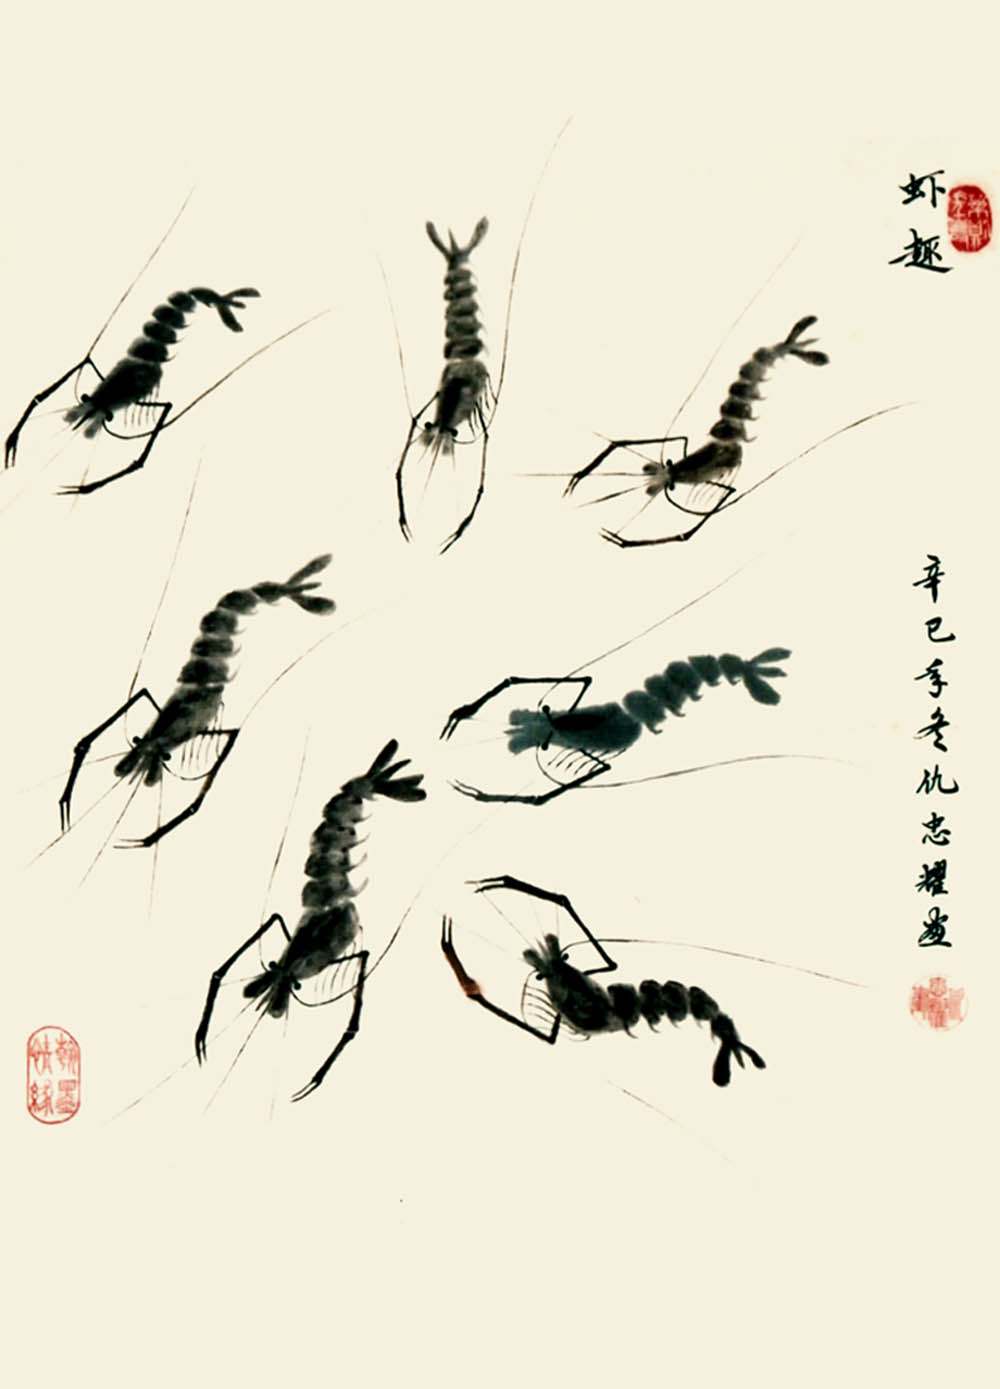 虾趣
辛巳年冬仇忠耀画
翰墨
情缘